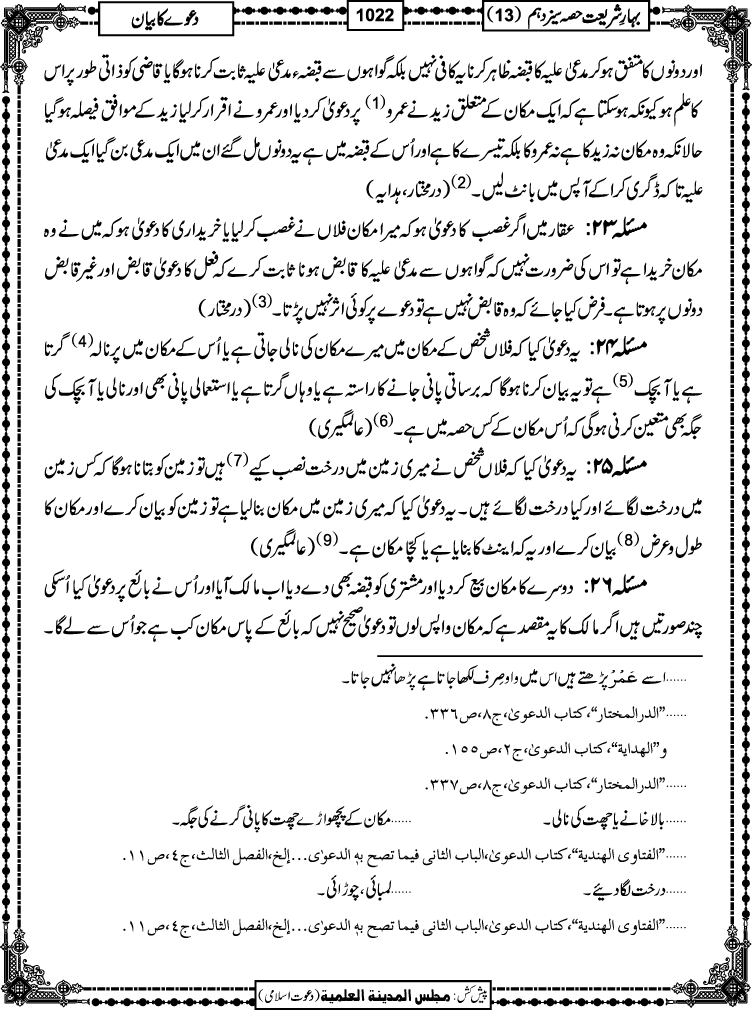 بہارِشریعت حصہ سیزدہم (13)
1022
دعوے کا بیان
اور دونوں کا متفق ہوکر مدعیٰ علیہ کا قبضہ ظاہر کرنا یہ کافی نہیں بلکہ گواہوں سے قبضۂ مدعیٰ علیہ ثابت کرنا ہوگا یا قاضی کو ذاتی طور پر اس
کا علم ہو کیونکہ ہوسکتا ہے کہ ایک مکان کے متعلق زید نے عمرو (1) پر دعویٰ کردیا اور عمرو نے اقرار کرلیا زید کے موافق فیصلہ ہوگیا
حالانکہ وہ مکان نہ زید کا ہے نہ عمرو کا بلکہ تیسرے کا ہے اور اُس کے قبضہ میں ہے یہ دونوں مل گئے ان میں ایک مدعی بن گیا ایک مدعیٰ
علیہ تاکہ ڈگری کراکے آپس میں بانٹ لیں۔ (2) (درمختار، ہدایہ)
مسئلہ ۲۳: عقار میں اگر غصب کا دعویٰ ہو کہ میرا مکان فلاں نے غصب کرلیا یا خریداری کا دعویٰ ہو کہ میں نے وہ
مکان خریدا ہے تو اس کی ضرورت نہیں کہ گواہوں سے مدعیٰ علیہ کا قابض ہونا ثابت کرے کہ فعل کا دعویٰ قابض اور غیر قابض
دونوں پر ہوتا ہے۔ فرض کیا جائے کہ وہ قابض نہیں ہے تو دعوے پر کوئی اثر نہیں پڑتا۔ (3) (درمختار)
مسئلہ ۲۴: یہ دعویٰ کیا کہ فلاں شخص کے مکان میں میرے مکان کی نالی جاتی ہے یا اُس کے مکان میں پرنالہ (4) گرتا
ہے یا آبچک (5) ہے تو یہ بیان کرنا ہوگا کہ برساتی پانی جانے کا راستہ ہے یا وہاں گرتا ہے یا استعمالی پانی بھی اور نالی یا آبچک کی
جگہ بھی متعین کرنی ہوگی کہ اُس مکان کے کس حصہ میں ہے۔ (6) (عالمگیری)
مسئلہ ۲۵: یہ دعویٰ کیا کہ فلاں شخص نے میری زمین میں درخت نصب کیے (7) ہیں تو زمین کو بتانا ہوگا کہ کس زمین
میں درخت لگائے اور کیا درخت لگائے ہیں۔ یہ دعویٰ کیا کہ میری زمین میں مکان بنالیا ہے تو زمین کو بیان کرے اور مکان کا
طول و عرض (8) بیان کرے اور یہ کہ اینٹ کا بنایا ہے یا کچّا مکان ہے۔ (9) (عالمگیری)
مسئلہ ۲۶: دوسرے کا مکان بیع کردیا اور مشتری کو قبضہ بھی دے دیا اب مالک آیا اور اُس نے بائع پر دعویٰ کیا اُسکی
چند صورتیں ہیں اگر مالک کا یہ مقصد ہے کہ مکان واپس لوں تو دعویٰ صحیح نہیں کہ بائع کے پاس مکان کب ہے جو اُس سے لے گا۔
......اسے عَمْرْ پڑھتے ہیں اس میں واو صرف لکھا جاتا ہے پڑھا نہیں جاتا۔
......”الدرالمختار“، کتاب الدعویٰ، ج۸، ص۳۳٦.
و ”الهداية“، کتاب الدعویٰ، ج۲، ص۱۵۵.
......”الدرالمختار“، کتاب الدعویٰ، ج۸، ص۳۳۷.
......بالا خانے یا چھت کی نالی۔ ......مکان کے پچھواڑے چھت کا پانی گرنے کی جگہ۔
......”الفتاوی الهندية“، کتاب الدعویٰ، الباب الثانی فیما تصح به الدعوٰی...إلخ، الفصل الثالث، ج٤، ص۱۱.
......درخت لگادیئے۔ ......لمبائی، چوڑائی۔
......”الفتاوی الهندية“، کتاب الدعویٰ، الباب الثانی فیما تصح به الدعوٰی...إلخ، الفصل الثالث، ج٤، ص۱۱.
پیش کش: مجلس المدينة العلمية (دعوت اسلامی)